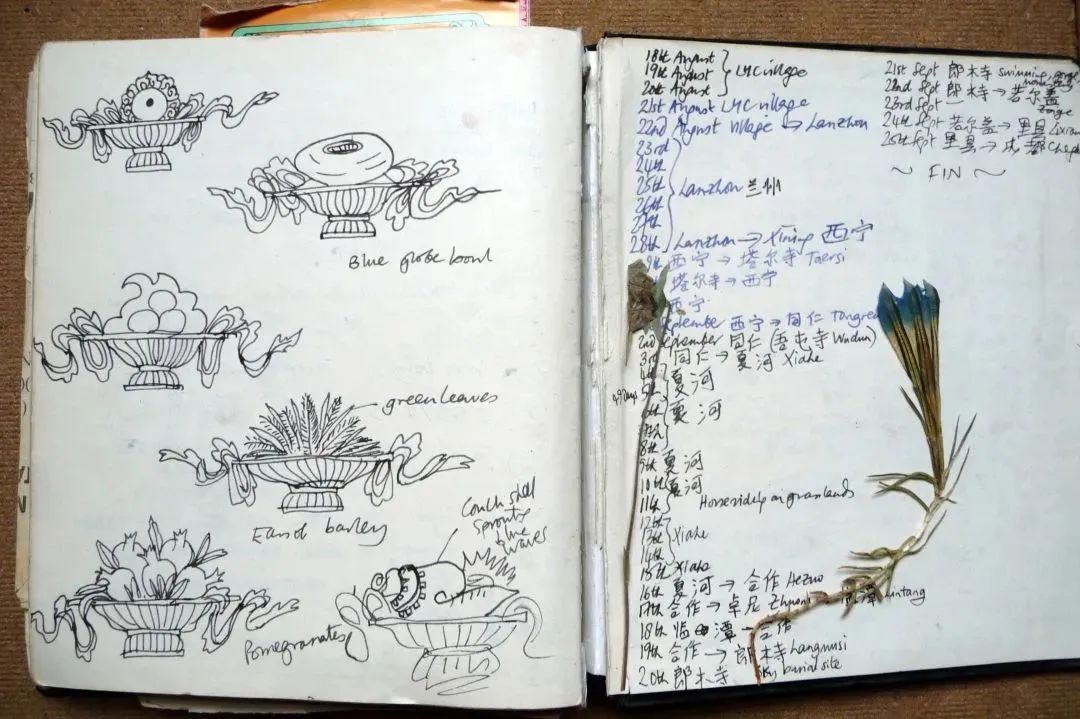 Blue globe bowl
green leaves
Ears of barley
Conch shell
sprouts
blue
waves
Pomegranates
18th August
19th August
20th August
LHC village
21st August LHC village
22nd August village → Lanzhou
23rd
24th
25th
26th
27th
Lanzhou 兰州
28th Lanzhou → Xining 西宁
西宁 → 塔尔寺 Taersi
塔尔寺 → 西宁
西宁
September 西宁 → 同仁 Tongren
2nd September 同仁 (吾屯寺 Wudun)
3rd 同仁 → 夏河 Xiahe
4th
5th
夏河
夏河
8th
9th 夏河
10th 夏河
11th Horseriding on grasslands
12th
13th
14th
Xiahe
15th Xiahe
16th 夏河 → 合作 Hezuo
17th 合作 → 卓尼 Zhuoni
18th 临潭 → 合作
19th 合作 → 郎木寺 Langmusi
20th 郎木寺 Sky burial site
21st Sept 郎木寺 swimming
22nd Sept 郎木寺 → 若尔盖
23rd Sept
24th Sept 若尔盖 →
25th Sept → 成都
~ FIN ~